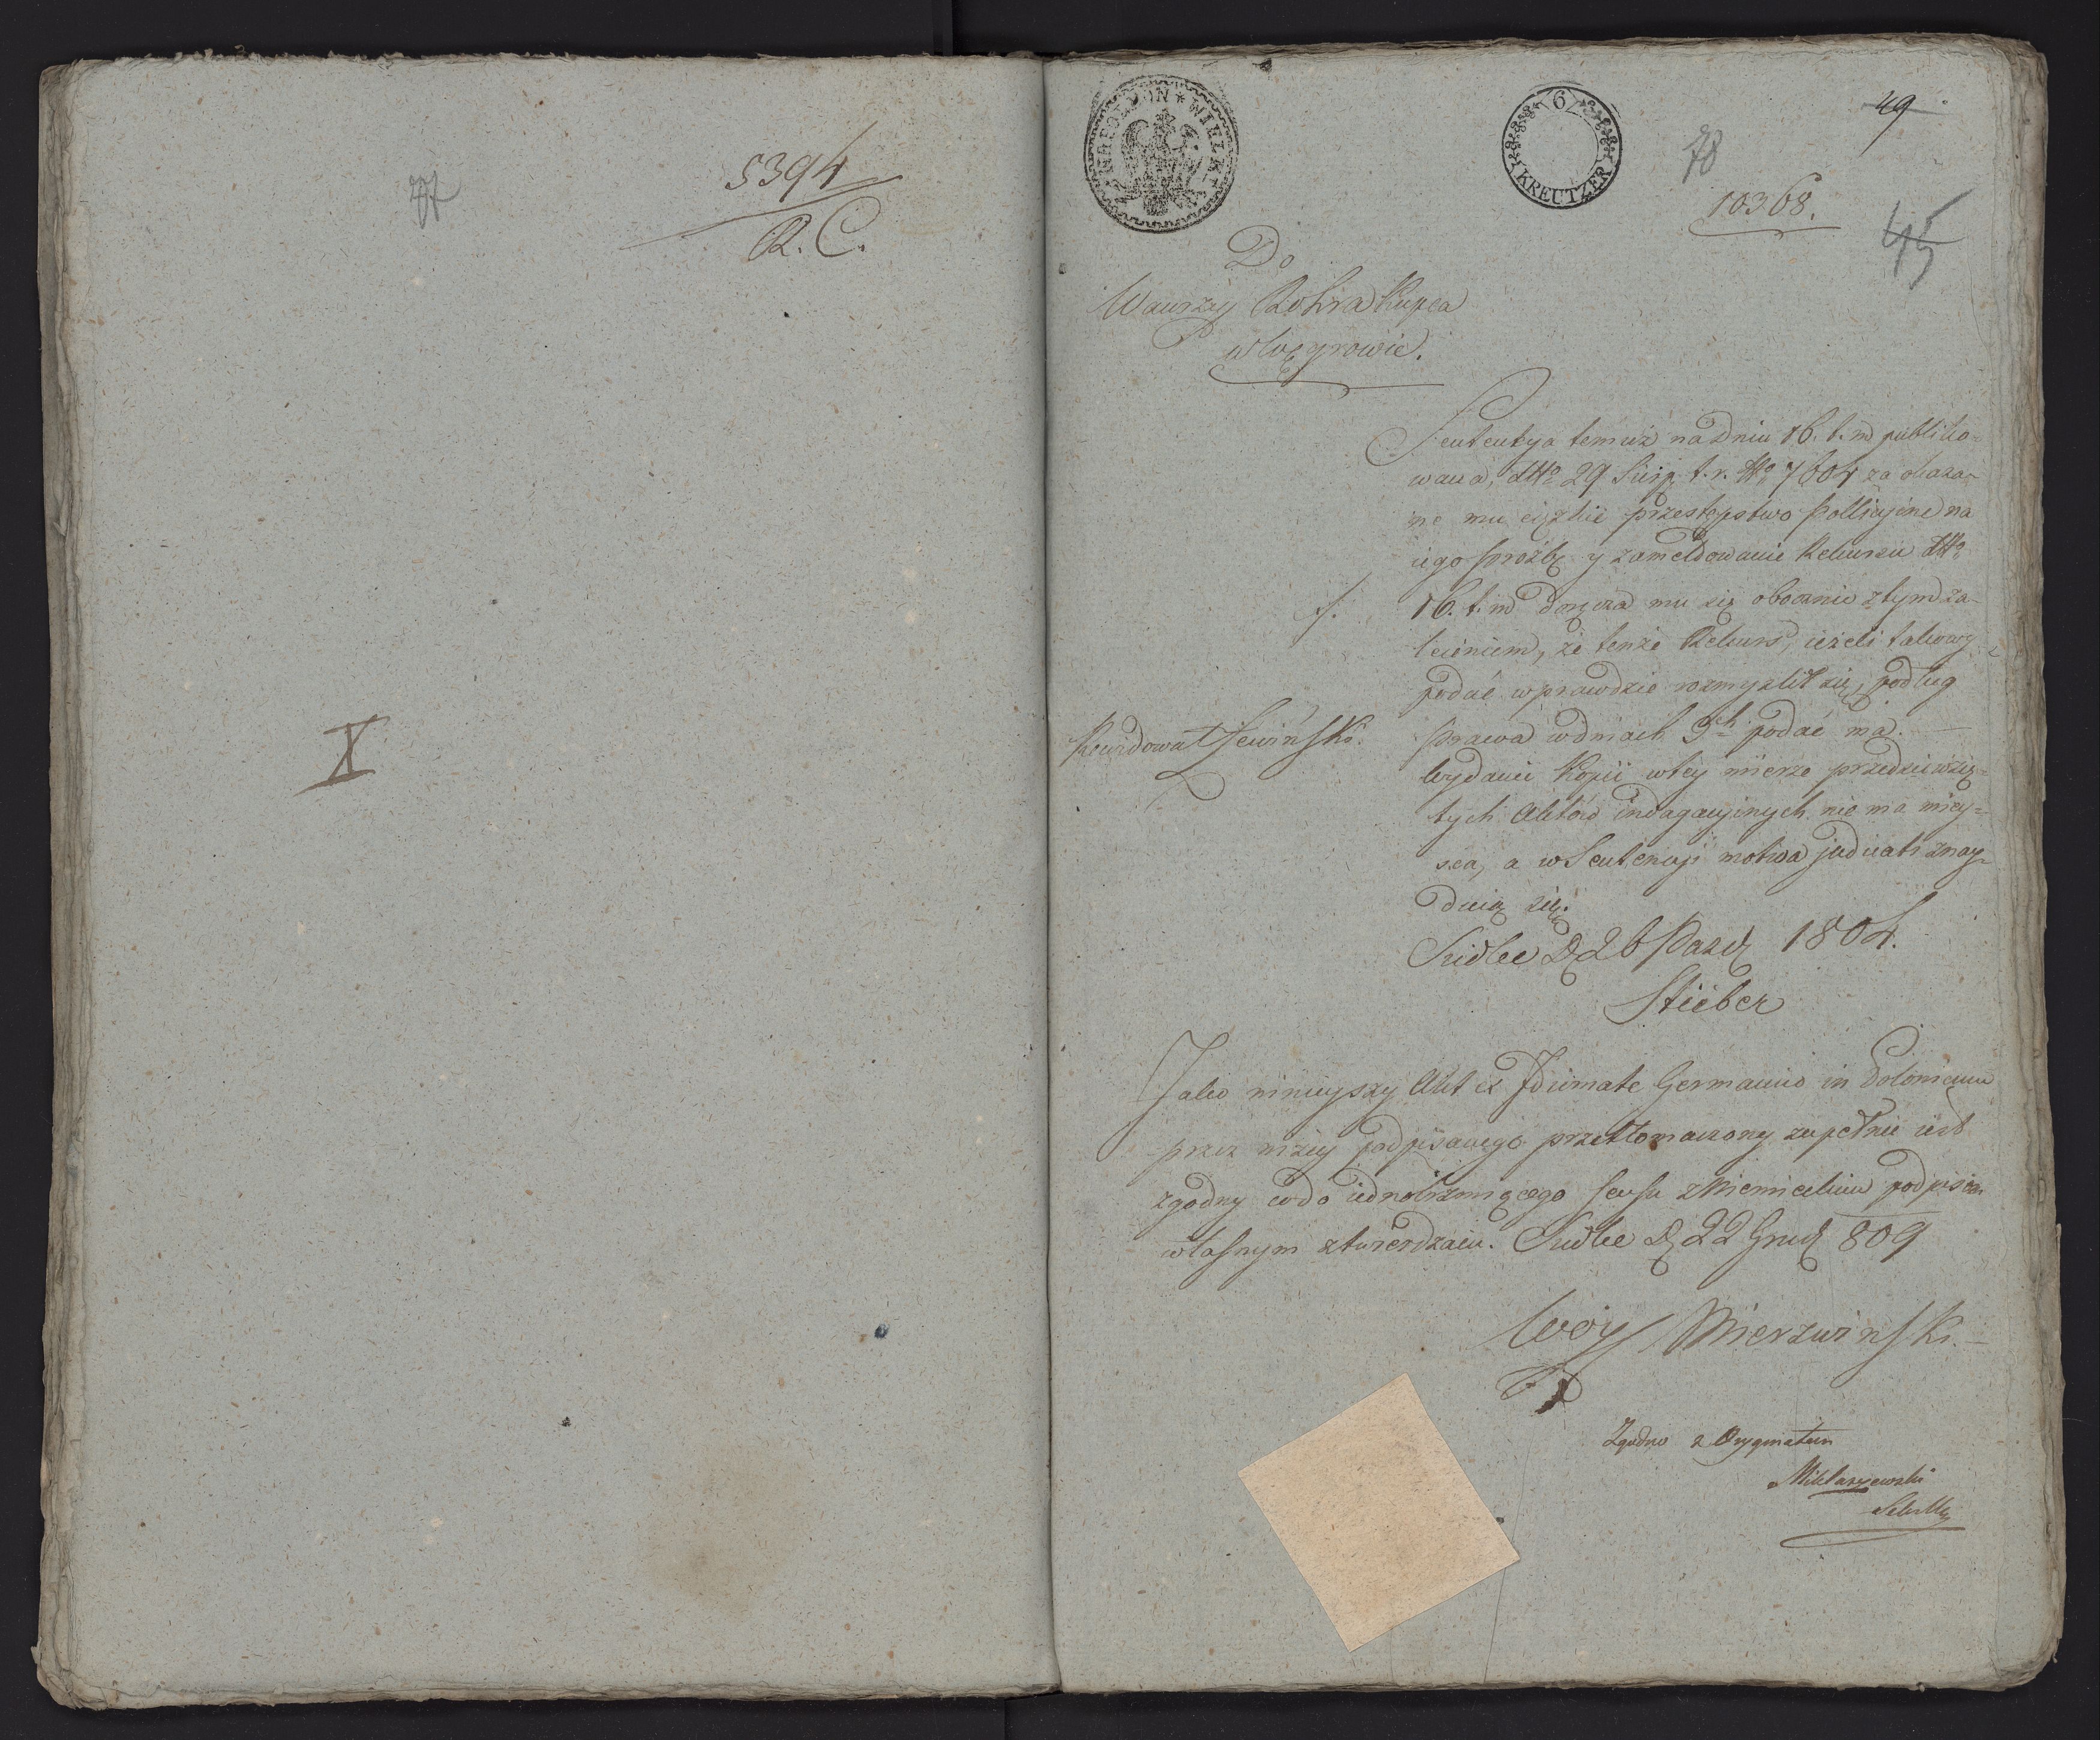 77
5394
R. C.
X
6
KREUTZER
49
78
10368.
45
Do
Wawrzyń Rohra Kupca
w Węgrowie.
Sentencya temuż na Dniu 16. t. m publiko-
wana, dtto 29 Sierp. t. r. Nro 7604 za okaza-
ne mu ciężkie przestępstwo Pollicyine na
iego proźbę y zameldowanie Rekursu dtto
/. 16. t. m doręcza mu się obocznie z tym za-
leceniem, że tenże Rekurs, ieżeli takowy
podać wprawdzie rozmyzlił się, podług
Prawa w dniach 9ch podać ma. —
Rewidował Lewiński.
Wydanie Kopii w tey mierze przedsięwzię-
tych Aktów indagacyinych nie ma miey=
sca, a w Sentencyi motiva judicati znay-
duią się.
Siedlce D. 26 Paźd. 1804.
Stieber
Jako ninieyszy Akt ex Idiomate Germanico in Polonicum
przez niżey podpisanego przetłomaczony zupełnie iest
zgodny co do iednobrzmiącego sensu z Niemieckim podpisem
własnym stwierdzam. Siedlce D. 22 Grud. 809
Woy Mierzwinski. —
Zgodno z Oryginałem
Miklaszewski